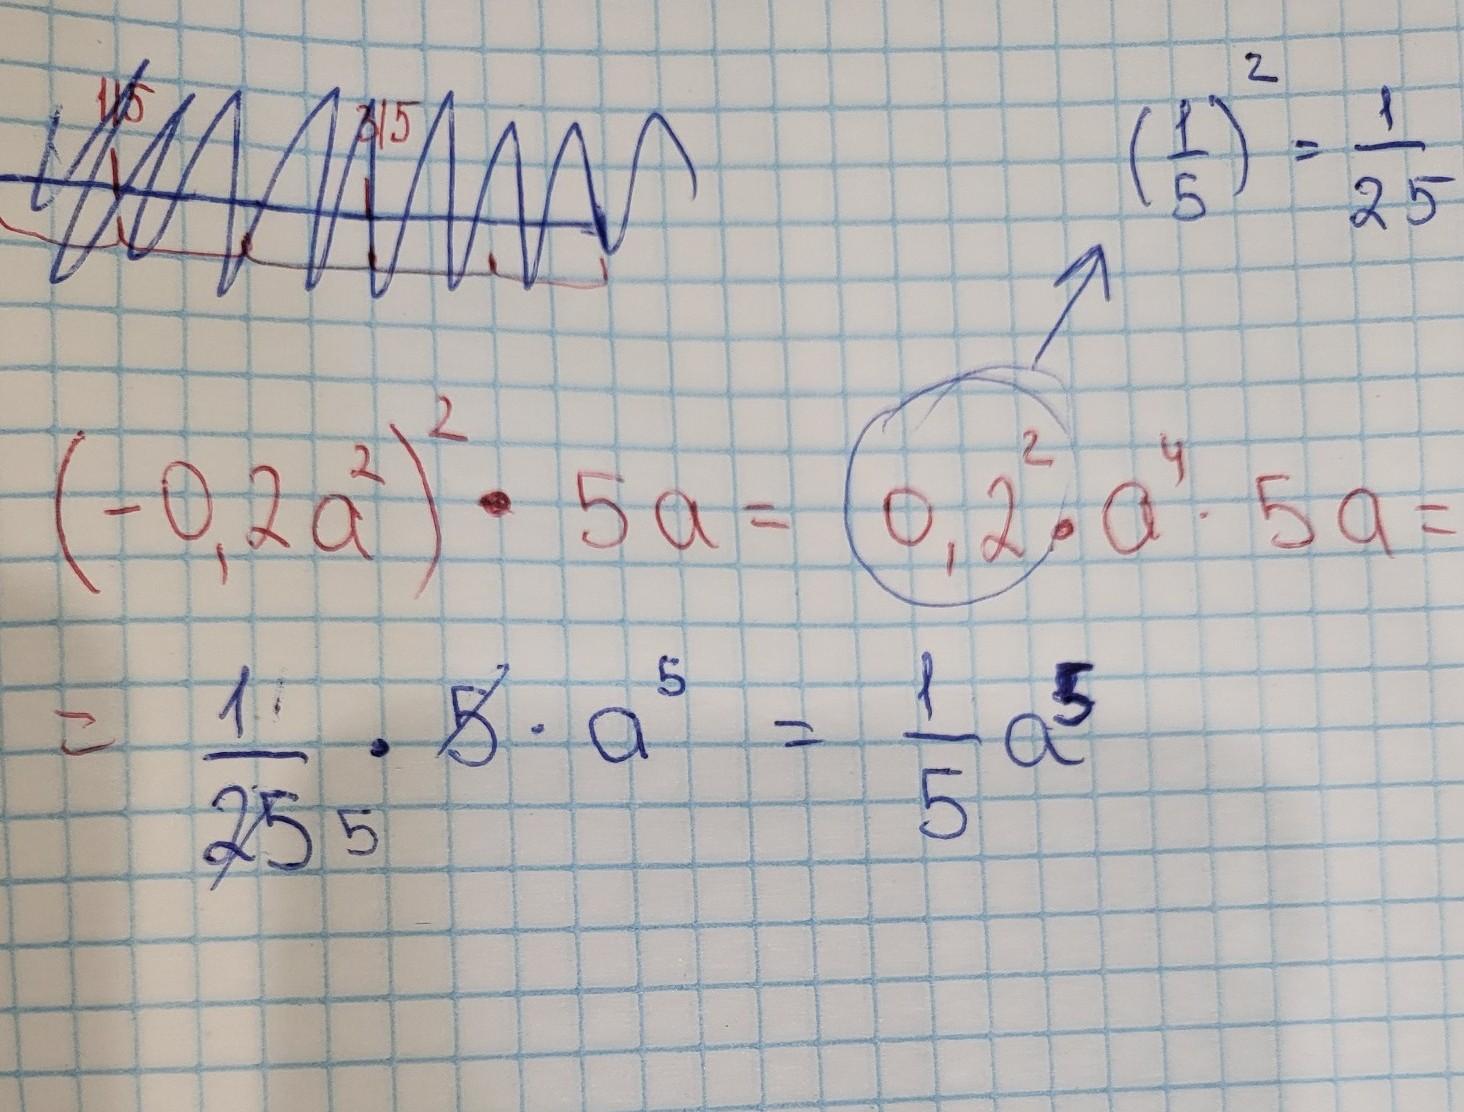 1/5 3/5
(1/5)² = 1/25
(-0,2a²)² • 5a = 0,2² • a⁴ · 5a =
= 1/25 5 • 5 · a⁵ = 1/5 a⁵